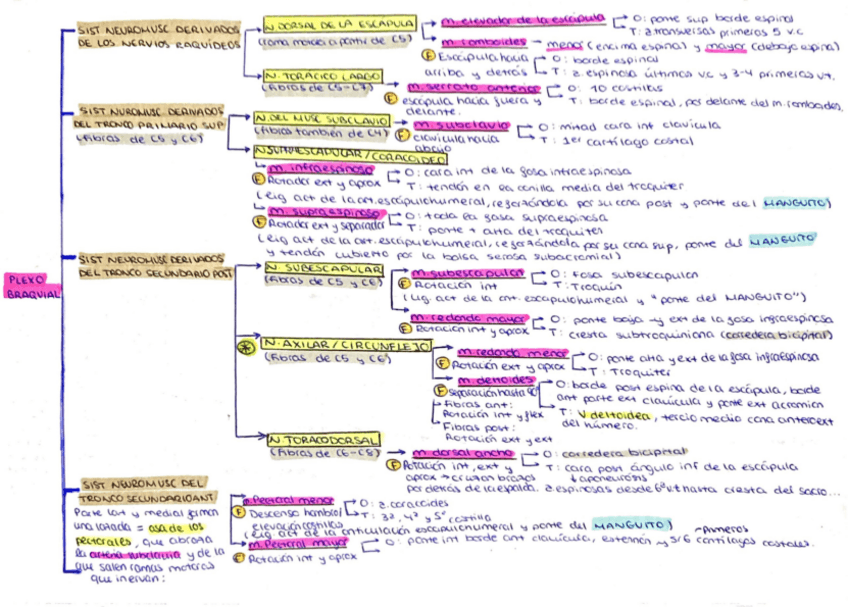 PLEXO
BRAQUIAL
SIST NEUROMUSC DERIVADOS
DE LOS NERVIOS RAQUÍDEOS
N. DORSAL DE LA ESCÁPULA
(rama motora a partir de C5)
m. elevador de la escápula
O: parte sup borde espinal
T: z. transversas primeras 5 v.c
m. romboides - menor (encima espina) y mayor (debajo espina)
(F) Escápula hacia
arriba y detrás
O: borde espinal
T: z. espinosa últimas v.c y 3-4 primeras v.t.
N. TORÁCICO LARGO
(fibras de C5-C7)
m. serrato anterior
(F) escápula hacia fuera y
delante.
O: 10 costillas
T: borde espinal, por delante del m. romboides.
SIST NUROMUSC DERIVADOS
DEL TRONCO PRIMARIO SUP
(fibras de C5 y C6)
N. DEL MUSC SUBCLAVIO
(fibras también de C4)
m. subclavio
(F) clavícula hacia
abajo
O: mitad cara inf clavícula
T: 1er cartílago costal
N. SUPRAESCAPULAR/CORACOIDEO
m. infraespinoso
(F) Rotador ext y aprox
O: cara int de la fosa infraespinosa
T: tendón en la carilla media del troquiter
(lig act de la art. escápulohumeral, reforzándola por su cara post y parte del MANGUITO)
m. supraespinoso
(F) Rotador ext y separador
O: toda la fosa supraespinosa
T: parte + alta del troquiter
(lig act de la art. escápulohumeral, reforzándola por su cara sup, parte del MANGUITO
y tendón cubierto por la bolsa serosa subacromial)
SIST NEUROMUSC DERIVADOS
DEL TRONCO SECUNDARIO POST
N. SUBESCAPULAR
(fibras de C5 y C6)
m. subescapular
(F) Rotación int
O: fosa subescapular
T: Troquín
(lig. act de la art. escapulohumeral y "parte del MANGUITO")
m. redondo mayor
(F) Rotación int y aprox
O: parte baja y ext de la fosa infraespinosa
T: cresta subtroquiniana (corredera bicipital)
N. AXILAR/CIRCUNFLEJO
(fibras de C5 y C6)
m. redondo menor
(F) Rotación ext y aprox
O: parte alta y ext de la fosa infraespinosa
T: Troquiter
m. deltoides
(F) separación hasta 90°
Fibras ant:
Rotación int y flex
Fibras post:
Rotación ext y ext
O: borde post espina de la escápula, borde
ant parte ext clavícula y parte ext acromion
T: V deltoidea, tercio medio cara anteroext
del húmero.
N. TORACODORSAL
(fibras de C6-C8)
m. dorsal ancho
(F) Rotación int, ext y
aprox → cruzan brazos
por detrás de la espalda.
O: corredera bicipital
T: cara post ángulo inf de la escápula
aponeurosis
z. espinosas desde 6ª v.t hasta cresta del sacro...
SIST NEUROMUSC DEL
TRONCO SECUNDARIO ANT
Parte lat y medial forman
una lazada = asa de los
pectorales, que abraza
la arteria subclavia y de la
que salen ramas motoras
que inervan:
m. Pectoral menor
(F) Descenso hombro/
elevación costillas
O: z. coracoides
T: 3ª, 4ª y 5ª costilla
(lig act de la articulación escapulohumeral y parte del MANGUITO)
m. Pectoral mayor
(F) Rotación int y aprox
O: parte int borde ant clavícula, esternón y 5/6 cartílagos costales.
primeros